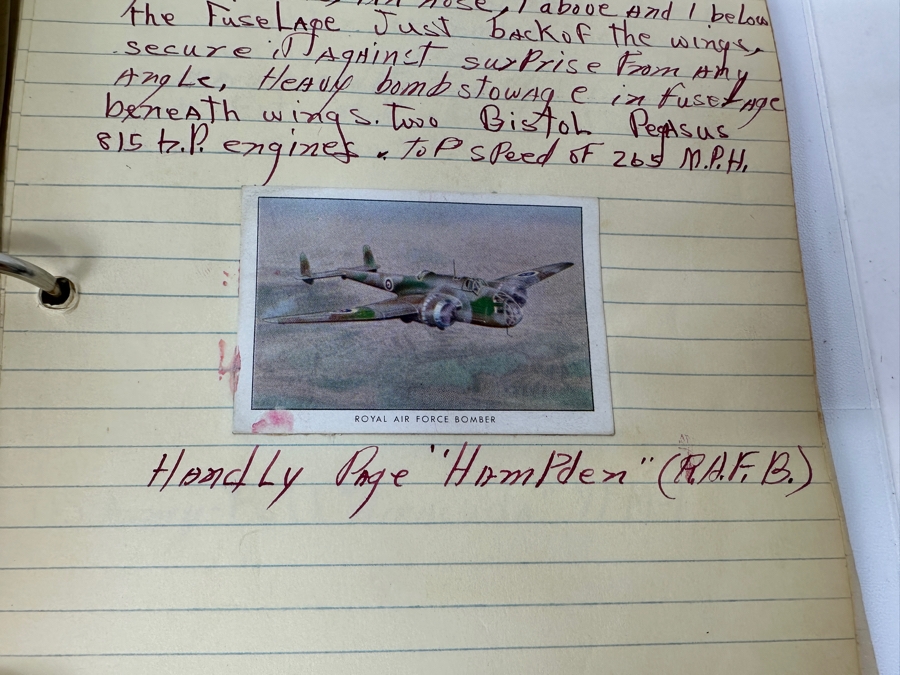 nose, 1 above And 1 below
the FuselAge Just bAck of the wings,
secure it AgAinst surprise from Any
Angle, HeAvy bomb stowAge in fuselAge
beneAth wings. Two Bistol PegAsus
815 h.P. engines. toP sPeed of 265 M.P.H.
ROYAL AIR FORCE BOMBER
HAndLy PAge "HAmPden" (R.A.F.B.)